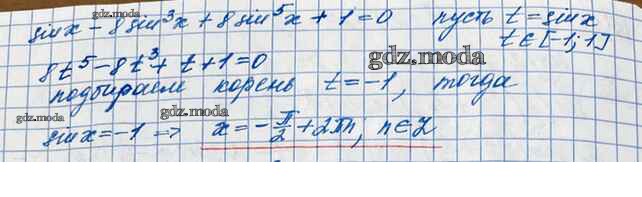 gdz.moda
sin x - 8 sin³x + 8 sin⁵x + 1 = 0 пусть t = sin x
t ∈ [-1; 1]
gdz.moda
8t⁵ - 8t³ + t + 1 = 0
gdz.moda
подбираем корень t = -1, тогда
gdz.moda
gdz.moda
sin x = -1 => x = -π/2 + 2πn, n ∈ Z
gdz.moda